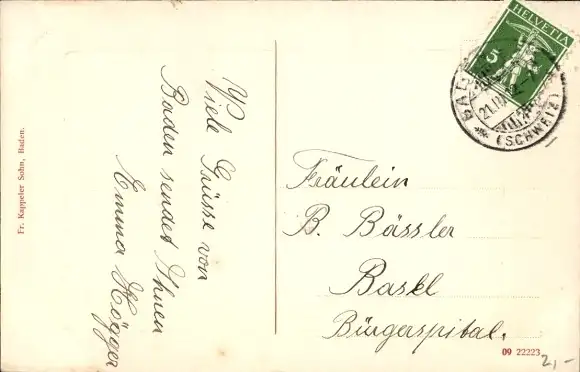 Viele Grüsse von
Baden sendet Ihnen
Emma Högger
Fräulein
B. Bässler
Basel
Bürgerspital.
HELVETIA
5
(SCHWEIZ)
Fr. Kappeler Sohn, Baden.
09 22223
2,-